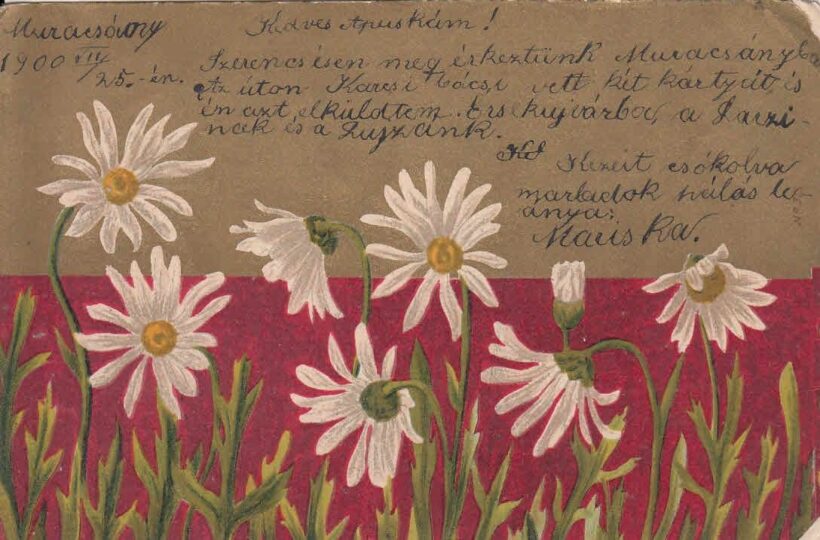 Muracsány
1900 VII/25.-én.
Kedves Apuskám!
Szerencsésen meg érkeztünk Muracsányba
Az úton Karcsi bácsi vett két kartyát, is
én azt elküldtem. Érsekujvárba, a Laczi-
nak és a Lujzánk.
Kezeit csókolva
maradok hálás le-
ánya:
Mariska.